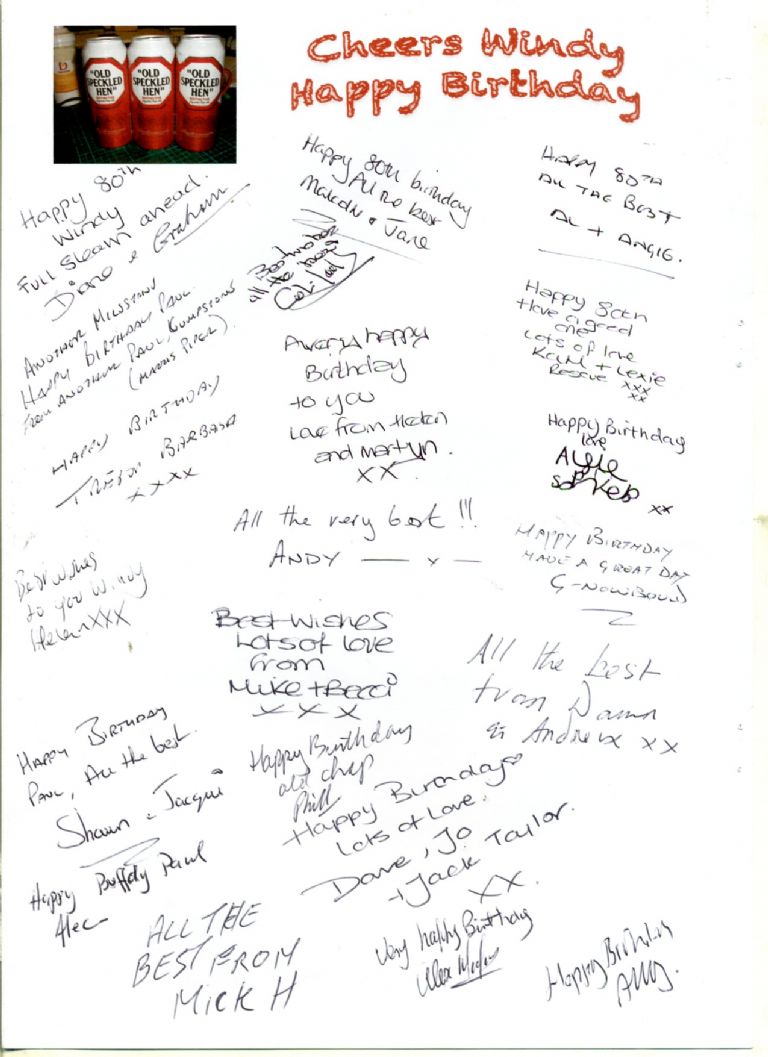 Cheers Windy
Happy Birthday
"OLD
SPECKLED
HEN"
"OLD
SPECKLED
HEN"
"OLD
SPECKLED
HEN"
Happy 80th
Windy
Full Steam ahead.
Diane & Graham
Happy 80th birthday
All the best
Malcolm & Jane
HAPPY 80TH
ALL THE BEST
AL + ANGIE.
Best wishes
all the
ANOTHER MILESTONE
HAPPY BIRTHDAY PAUL.
FROM ANOTHER PAUL,
Happy 80th
Have a good
one
Lots of love
+ Lexie
Rescue xxx
xx
A very happy
Birthday
to you
Love from Helen
and Martyn.
XX
HAPPY BIRTHDAY
TREVOR BARBARA
xxxx
Happy Birthday
love
xx
All the very best !!!
ANDY — x —
HAPPY BIRTHDAY
HAVE A GREAT DAY
Best wishes
to you Windy
Helen XXX
Best Wishes
Lots of love
from
Mike + Becci
X X X
All the best
from Dawn
& Andrew xx
HAPPY BIRTHDAY
PAUL, ALL the best.
Shaun & Jacqui
Happy Birthday
old chap
Phill
Happy Birthday
Lots of love.
Dave, Jo
+ Jack Taylor.
XX.
Happy Buffdy Paul
Alec
ALL THE
BEST FROM
MICK H
Very happy Birthday
Alex
Happy Birthday